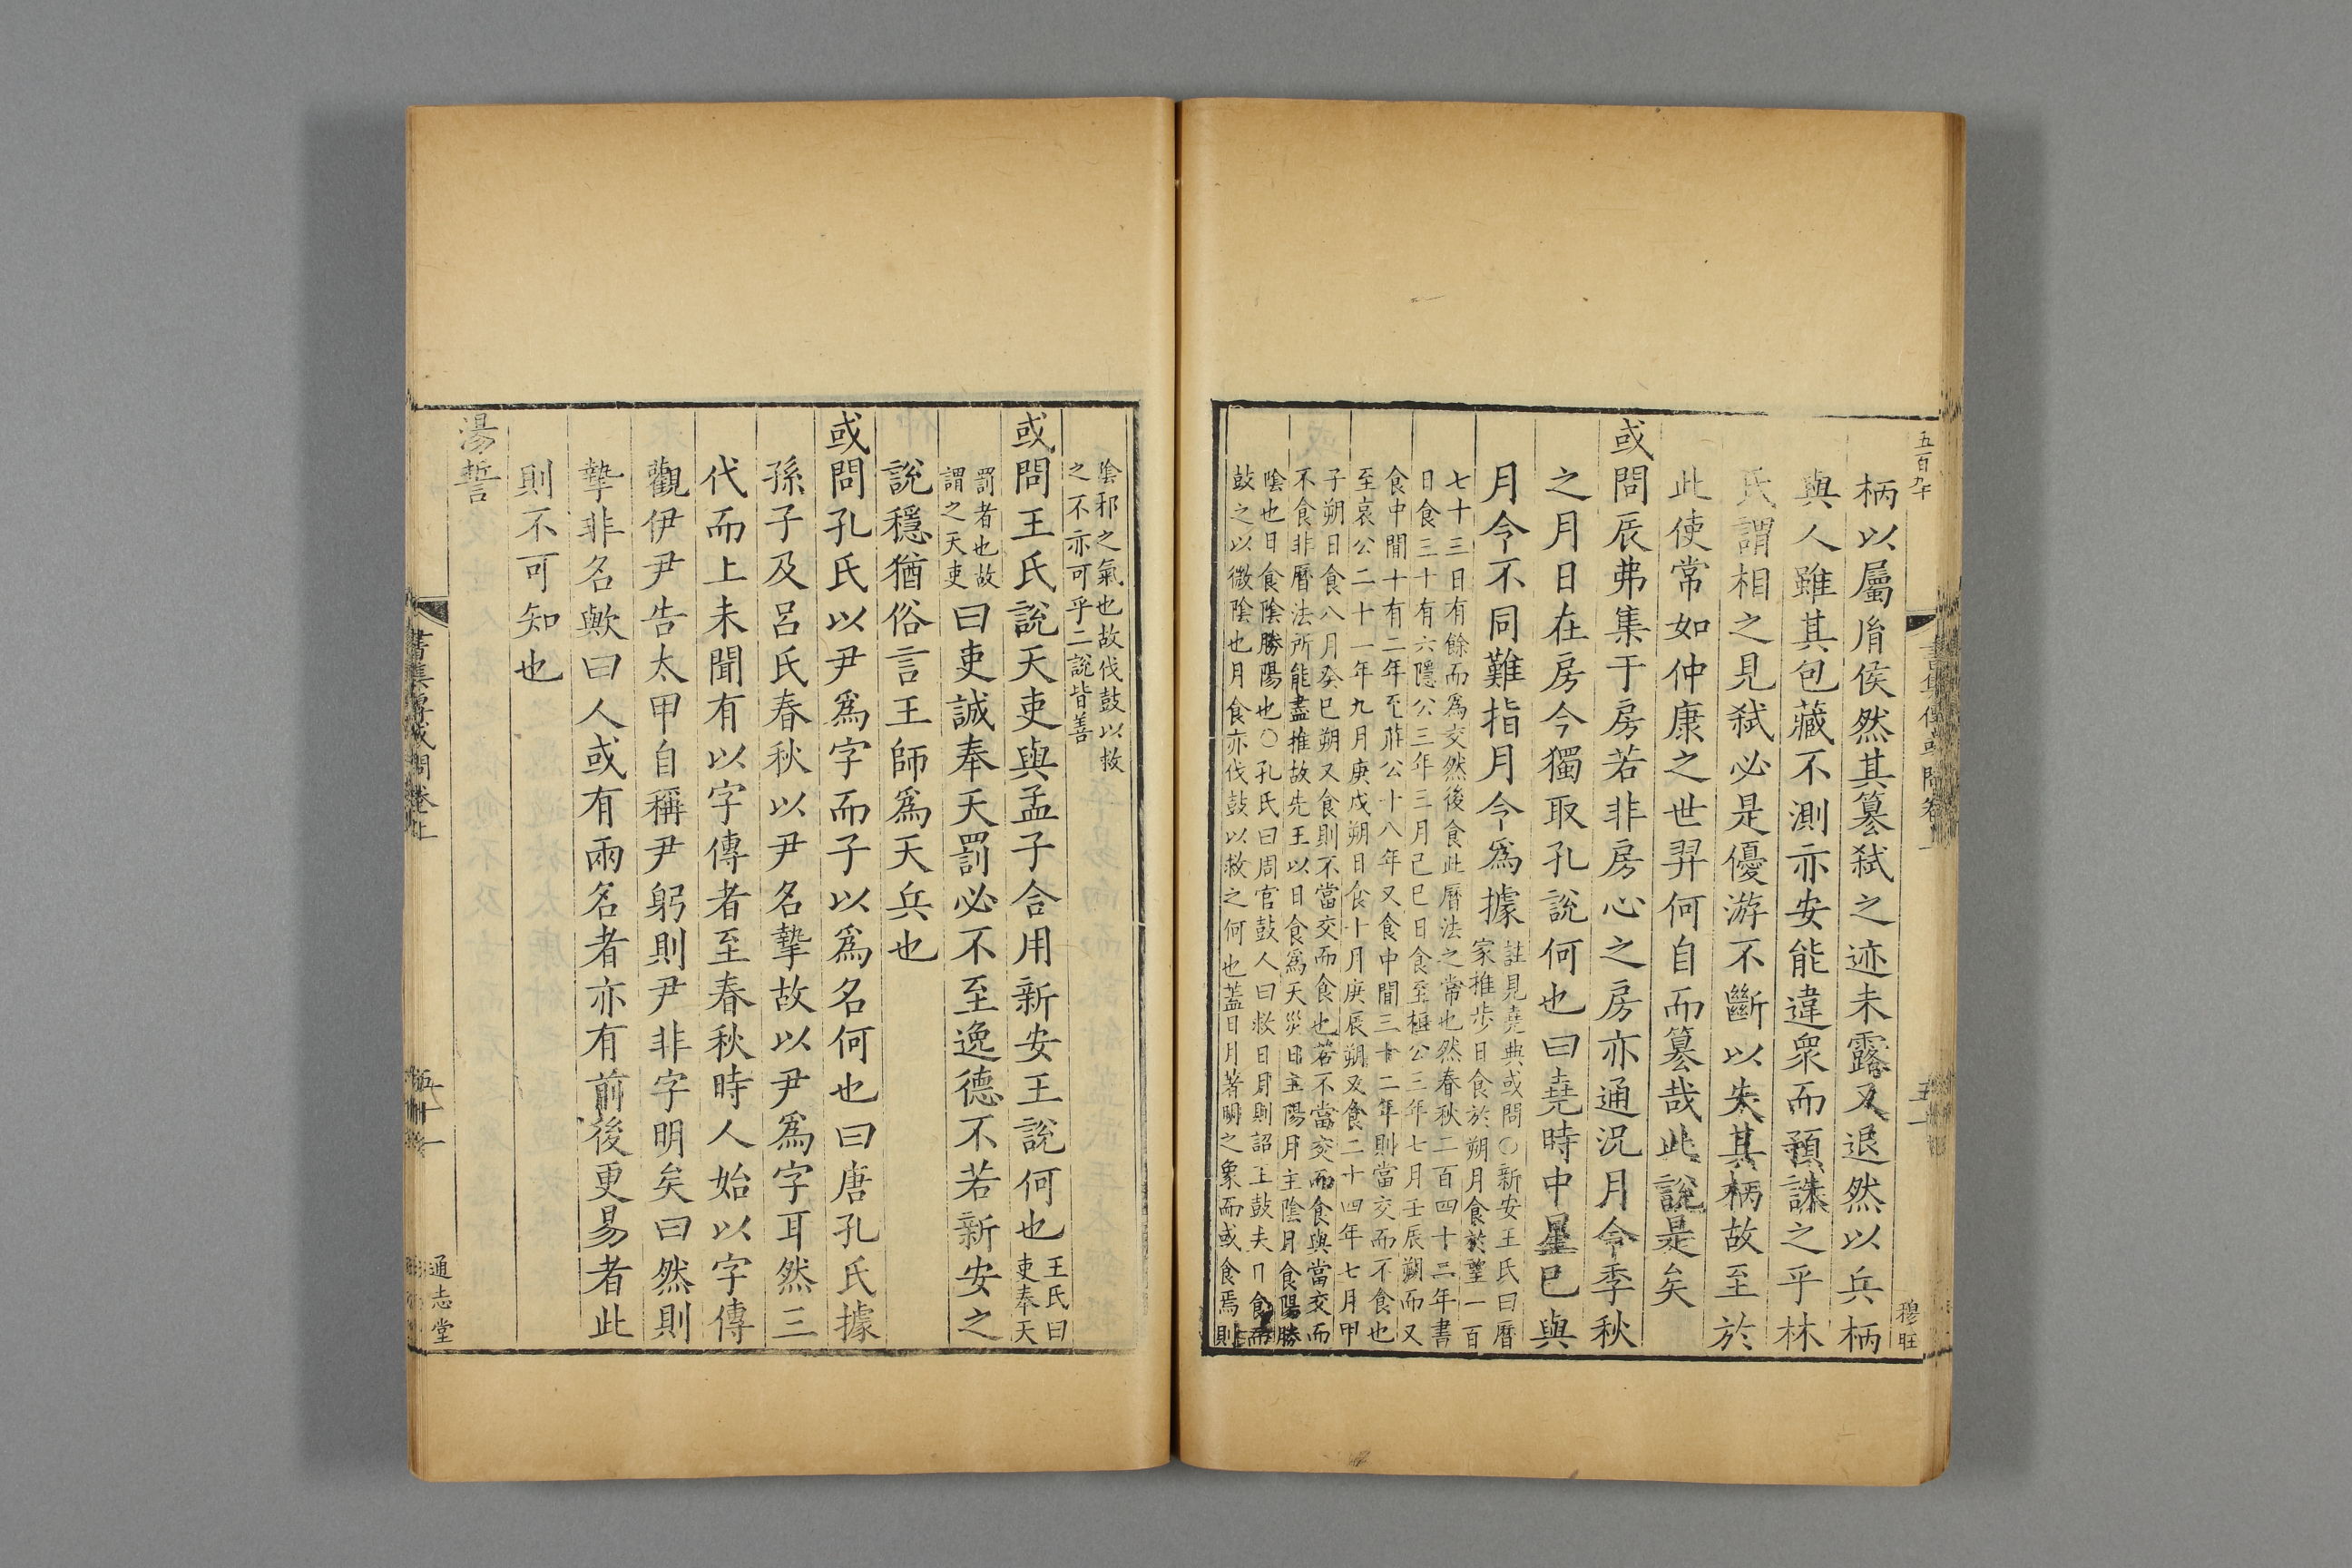 五百九十
柄以屬胤侯然其簒弑之迹未露又退然以兵柄
與人雖其包藏不測亦安能違衆而預誅之乎林
氏謂相之見弑必是優游不斷以失其柄故至於
此使常如仲康之世羿何自而簒哉此說是矣
或問辰弗集于房若非房心之房亦通況月令季秋
之月日在房今獨取孔說何也曰堯時中星已與
月令不同難指月令爲據
註見堯典或問○新安王氏曰曆
家推步日食於朔月食於望一百
七十三日有餘而爲交然後食此曆法之常也然春秋二百四十二年書
日食三十有六隱公三年三月己巳日食至桓公三年七月壬辰朔而又
食中閒十有二年至莊公十八年又食中間三十二年則當交而不食也
至哀公二十一年九月庚戌朔日食十月庚辰朔又食二十四年七月甲
子朔日食八月癸巳朔又食則不當交而食也若不當交而食與當交而
不食非曆法所能盡推故先王以日食爲天災日主陽月主陰月食陽勝
陰也日食陰勝陽也○孔氏曰周官鼓人曰救日月則詔王鼓夫月食而
鼓之以微陰也月食亦伐鼓以救之何也蓋日月著明之象而或食焉則
穆旺
陰邪之氣也故伐鼓以救
之不亦可乎二說皆善
或問王氏說天吏與孟子合用新安王說何也
王氏曰
吏奉天
罰者也故
謂之天吏
曰吏誠奉天罰必不至逸德不若新安之
說穩猶俗言王師爲天兵也
或問孔氏以尹爲字而子以爲名何也曰唐孔氏據
孫子及呂氏春秋以尹名摯故以尹爲字耳然三
代而上未聞有以字傳者至春秋時人始以字傳
觀伊尹告太甲自稱尹躬則尹非字明矣曰然則
摯非名歟曰人或有兩名者亦有前後更易者此
則不可知也
湯誓
書集傳或問卷上
通志堂